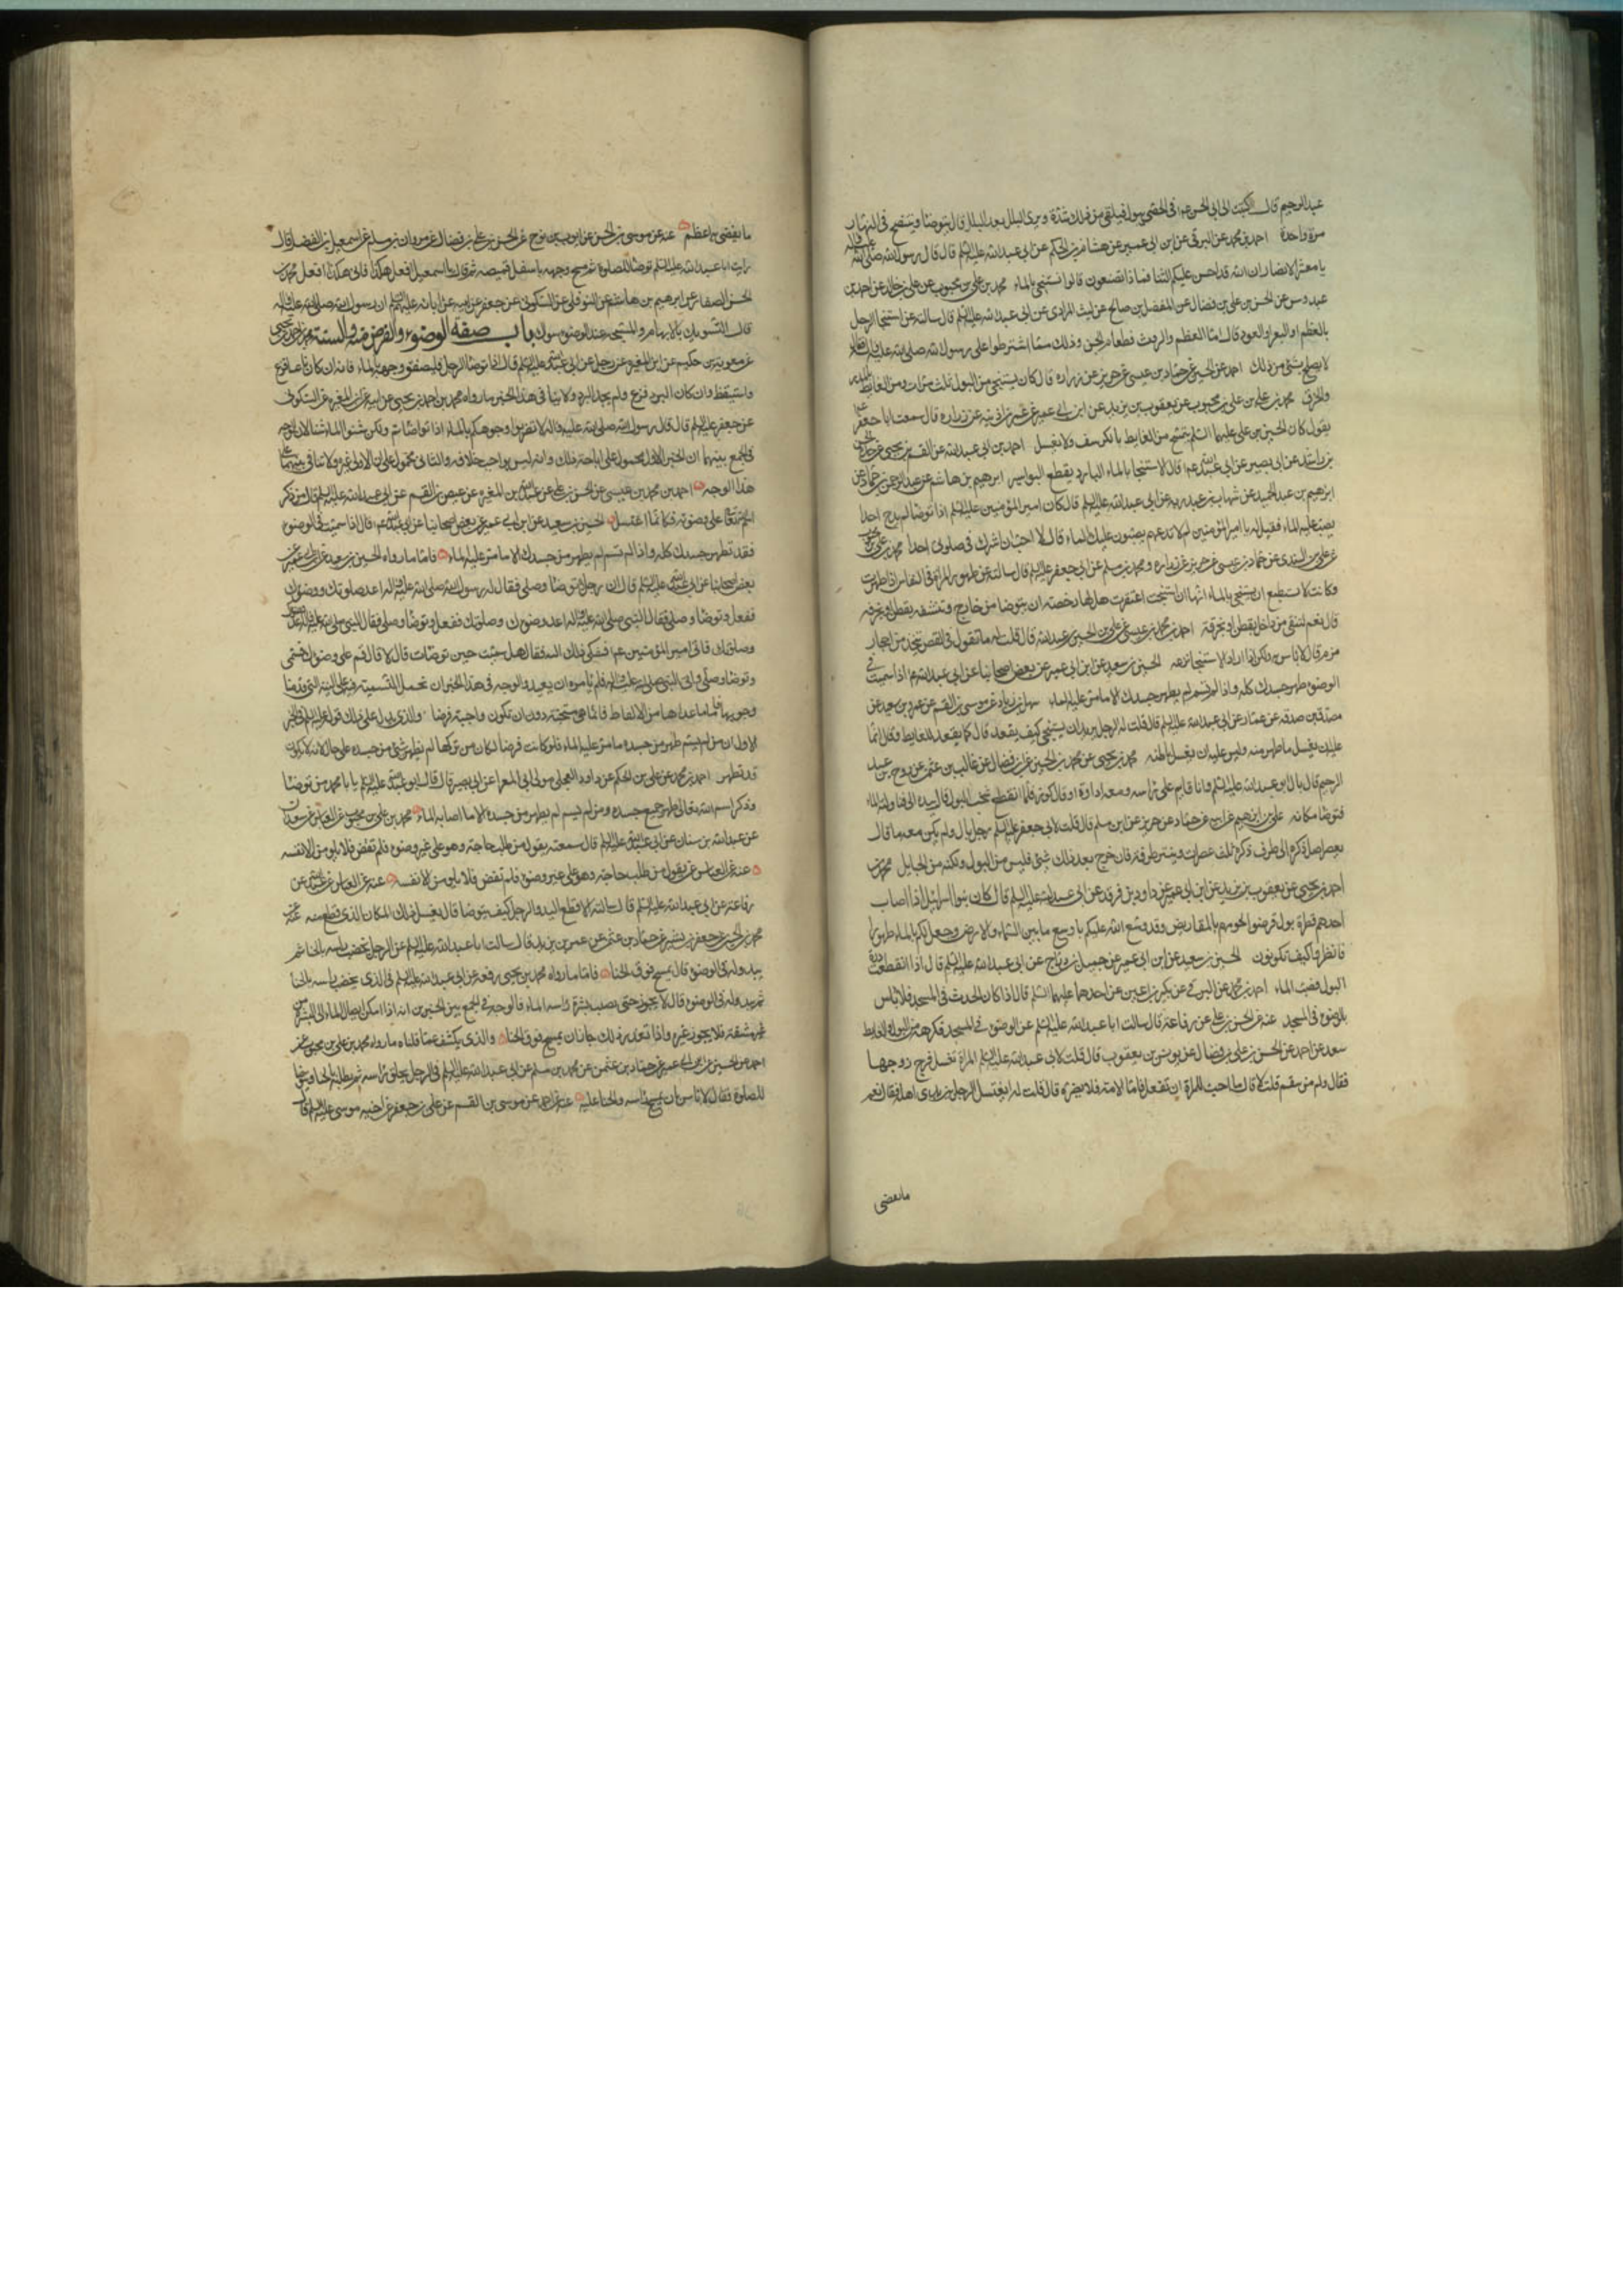 عبد الرحيم قال كتبت الى ابي الحسن ع في الخصي يبول فيلقى من ذلك شدة ويرى البلل بعد البلل قال يتوضأ وينتضح في النهار
مرة واحدة احمد بن محمد عن البرقي عن ابن ابي عمير عن هشام بن الحكم عن ابي عبد الله عليه السلم قال قال رسول الله صلى الله عليه وآله
يا معشر الانصار ان الله قد احسن عليكم الثنا فماذا تصنعون قالوا نستنجي بالماء محمد بن علي بن محبوب عن علي بن خالد عن احمد بن
عبدوس عن الحسن بن علي بن فضال عن المفضل بن صالح عن ليث المرادي عن ابي عبد الله عليه السلم قال سالته عن استنجا الرجل
بالعظم او البعر او العود قال امّا العظم والروث فطعام الجن وذلك ممّا اشترطوا على رسول الله صلى الله عليه وآله فقال
لا يصلح بشئ من ذلك احمد عن الحسين عن حماد بن عيسى عن حريز عن زراره قال كان يستنجي من البول ثلث مرات ومن الغايط بالمدر
والخرق محمد بن علي بن محبوب عن يعقوب بن يزيد عن ابن ابي عمير عن عمر بن اذينه عن زراره قال سمعت ابا جعفر ع
يقول كان الحسين بن علي عليهما السلم يتمسح من الغايط بالكرسف ولا يغسل احمد بن ابي عبد الله عن القسم بن يحيى عن جده الحسن
بن راشد عن ابي بصير عن ابي عبد الله ع قال الاستنجا بالماء البارد يقطع البواسير ابرهيم بن هاشم عن عبد الرحمن بن حماد عن
ابرهيم بن عبد الحميد عن شهاب بن عبد ربه عن ابي عبد الله عليه السلم قال كان امير المؤمنين عليه السلم اذا توضا لم يدع احدا
يصب عليه الماء فقيل له يا امير المؤمنين لم لا تدعهم يصبون عليك الماء قال لا احب ان اشرك في صلوتي احدا محمد بن علي بن محبوب
عن علي بن السندي عن حماد بن عيسى عن حريز عن زراره ومحمد بن مسلم عن ابي جعفر عليه السلم قال سالته عن طهور المراة في النفاس اذا طهرت
وكانت لا تستطيع ان تستنجي بالماء انها ان استنجت اعتقرت هل لها رخصة ان تتوضا من خارج وتنشفه بقطن او خرقه
قال نعم لتنقي من داخل بقطن او بخرقة احمد بن محمد بن عيسى عن علي بن الحسين بن عبد ربه قال قلت له ما تقول في الفص يتخذ من احجار
زمزم قال لا باس به ولكن اذا اراد الاستنجا نزعه الحسين بن سعيد عن ابن ابي عمير عن بعض اصحابنا عن ابي عبد الله ع اذا سميت في
الوضوء طهر جسدك كله واذا لم تسم لم يطهر من جسدك الا ما مر عليه الماء سهل بن زياد عن موسى بن القسم عن عمرو بن سعيد عن
مصدق بن صدقه عن عمار عن ابي عبد الله عليه السلم قال قلت له الرجل يريد ان يستنجي كيف يقعد قال كما يقعد للغايط وقال انما
عليه ان يغسل ما ظهر منه وليس عليه ان يغسل باطنه محمد بن يحيى عن محمد بن الحسين عن ابن فضال عن غالب بن عثمن عن روح بن عبد
الرحيم قال بال ابو عبد الله عليه السلم وانا قايم على راسه ومعه اداوة او قال كوز فلما انقطع شخب البول قال بيده الى فناولته الماء
فتوضا مكانه علي بن ابرهيم عن ابيه عن حماد عن حريز عن ابن مسلم قال قلت لابي جعفر عليه السلم رجل بال ولم يكن معه ما قال
يعصر اصل ذكره الى طرف ذكره ثلث عصرات وينتر طرفه فان خرج بعد ذلك شئ فليس من البول ولكنه من الحبايل محمد بن
احمد بن يحيى عن يعقوب بن يزيد عن ابن ابي عمير عن داود بن فرقد عن ابي عبد الله عليه السلم قال كان بنوا اسرائيل اذا اصاب
احدهم قطرة بول قرضوا لحومهم بالمقاريض وقد وسع الله عليكم باوسع ما بين السماء والارض وجعل لكم الماء طهورا
فانظروا كيف تكونون الحسين بن سعيد عن ابن ابي عمير عن جميل بن دراج عن ابي عبد الله عليه السلم قال اذا انقطعت درة
البول فصب الماء احمد بن محمد عن البرقي عن بكير بن اعين عن احدهما عليهما السلم قال اذا كان الحدث في المسجد فلا باس
بالوضوء في المسجد عنه عن الحسن بن علي عن رفاعة قال سالت ابا عبد الله عليه السلم عن الوضوء في المسجد فكرهه من البول والغايط
سعد عن احمد عن الحسن بن علي بن فضال عن يونس بن يعقوب قال قلت لابي عبد الله عليه السلم المراة تغسل فرج زوجها
فقال ولم من سقم قلت لا قال ما احب للحرة ان تفعل فامّا الامة فلا يضره قال قلت له ايغتسل الرجل بين يدي اهله فقال نعم
ما يفضي
ما يفضي به اعظم عنه عن موسى بن الحسن عن ايوب بن نوح عن الحسن بن علي بن فضال عن مروان بن مسلم عن اسمعيل بن الفضل قال
رايت ابا عبد الله عليه السلم توضا للصلوة ثم مسح وجهه باسفل قميصه ثم قال يا اسمعيل افعل هكذا فاني هكذا افعل محمد بن
الحسن الصفار عن ابرهيم بن هاشم عن النوفلي عن السكوني عن جعفر عن ابيه عن آبائه عليهم السلم ان رسول الله صلى الله عليه وآله
قال التسويك بالابهام والمسبحة عند الوضوء سواك باب صفة الوضوء والفرض منه والسنة محمد بن احمد بن يحيى
عن معوية بن حكيم عن ابن المغيره عن رجل عن ابي عبد الله عليه السلم قال اذا توضا الرجل فليصفق وجهه بالماء فانه ان كان ناعسا فزع
واستيقظ وان كان البرد فزع ولم يجد البرد ولا ينافي هذا الخبر ما رواه محمد بن احمد بن يحيى عن ابيه عن ابن المغيره عن السكوني
عن جعفر عليه السلم قال قال رسول الله صلى الله عليه وآله لا تضربوا وجوهكم بالماء اذا توضاتم ولكن شنوا الماء شنا لان الوجه
في الجمع بينهما ان الخبر الاول محمول على اباحة ذلك وانه ليس بواجب خلافه والثاني محمول على ان الاولى غيره ولا تنافي بينهما على
هذا الوجه احمد بن محمد بن عيسى عن الحسن بن علي عن عبد الله بن المغيره عن عيص بن القسم عن ابي عبد الله عليه السلم قال من ذكر
اسم الله تعالى على وضوئه فكانما اغتسل الحسين بن سعيد عن ابن ابي عمير عن بعض اصحابنا عن ابي عبد الله ع قال اذا سميت في الوضوء
فقد تطهر جسدك كله واذا لم تسم لم يطهر من جسدك الا ما مر عليه الماء فامّا ما رواه الحسين بن سعيد عن ابن ابي عمير عن
بعض اصحابنا عن ابي عبد الله عليه السلم قال ان رجلا توضا وصلى فقال له رسول الله صلى الله عليه وآله اعد صلوتك ووضوءك
ففعل وتوضا وصلى فقال النبي صلى الله عليه وآله اعد وضوءك وصلوتك ففعل وتوضا وصلى فقال النبي صلى الله عليه وآله اعد وضوءك
وصلوتك فاتى امير المؤمنين ع فشكى ذلك اليه فقال هل سميت حين توضات قال لا قال فسم على وضوئك فسمى
وتوضا وصلى فاتى النبي صلى الله عليه وآله فلم يامره ان يعيد والوجه في هذا الخبر ان نحمل التسمية فيه على النية التي قدمنا
وجوبها فامّا ما عداها من الالفاظ فانما هي مستحبة دون ان تكون واجبة فرضا والذي يدل على ذلك قوله عليه السلم في الخبر
الاول ان من لم يسم طهر من جسده ما مر عليه الماء فلو كانت فرضا لكان من تركها لم يطهر شئ من جسده على حال لانه لا يكون
قد تطهر احمد بن محمد عن علي بن الحكم عن داود العجلي مولى ابي المعزا عن ابي بصير قال قال ابو عبد الله عليه السلم يا با محمد من توضا
وذكر اسم الله تعالى طهر جميع جسده ومن لم يسم لم يطهر من جسده الا ما اصابه الماء محمد بن علي بن محبوب عن العباس عن سعدان
عن عبد الله بن سنان عن ابي عبد الله عليه السلم قال سمعته يقول من طلب حاجة وهو على غير وضوء فلم تقض فلا يلومن الا نفسه
عنه عن العباس عن يقول من طلب حاجة وهو على غير وضوء فلم تقض فلا يلومن الا نفسه عنه عن العباس عن عبد الله عن
رفاعة عن ابي عبد الله عليه السلم قال سالته الاقطع اليد والرجل كيف يتوضا قال يغسل ذلك المكان الذي قطع منه عنه عن
محمد بن الحسين عن جعفر بن بشير عن حماد بن عثمن عن عمر بن يزيد قال سالت ابا عبد الله عليه السلم عن الرجل يخضب راسه بالحنا ثم
يبدو له في الوضوء قال يمسح فوق الحنا فامّا ما رواه محمد بن يحيى رفعه عن ابي عبد الله عليه السلم في الذي يخضب راسه بالحنا
ثم يبدو له في الوضوء قال لا يجوز حتى يصيب بشرة راسه الماء فالوجه في الجمع بين الخبرين انه اذا امكن ايصال الماء الى البشرة من
غير مشقة فلا يجوز غيره واذا تعذر ذلك جاز ان يمسح فوق الحنا والذي يكشف عما قلناه ما رواه محمد بن علي بن محبوب عن
احمد عن الحسين عن ابن ابي عمير عن حماد بن عثمن عن محمد بن مسلم عن ابي عبد الله عليه السلم في الرجل يحلق راسه ثم يطليه بالحنا ويتوضا
للصلوة فقال لا باس ان يمسح راسه والحنا عليه عنه عن احمد عن موسى بن القسم عن علي بن جعفر عن اخيه موسى عليه السلم قال